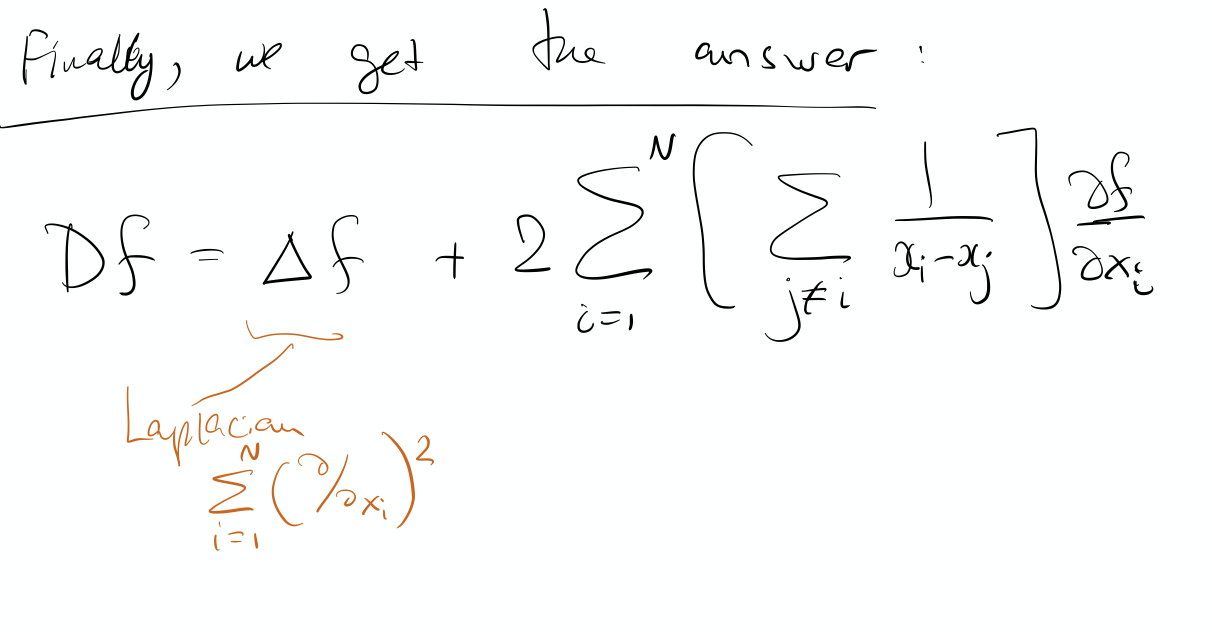 Finally, we get the answer:
Df = Δf + 2 \sum_{i=1}^{N} [ \sum_{j≠i} \frac{1}{x_i - x_j} ] \frac{∂f}{∂x_i}
Laplacian
\sum_{i=1}^{N} (∂/∂x_i)^2